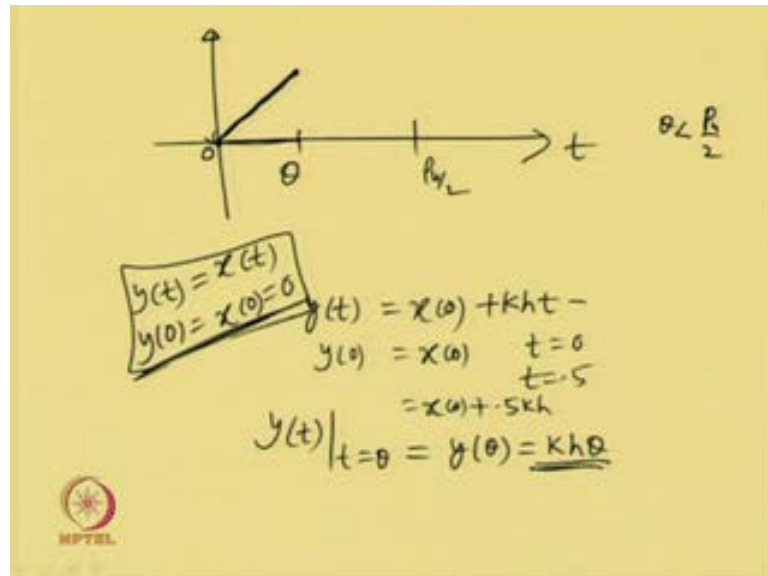 θ < Pu/2
0 θ Pu/2 t
y(t) = x(t)
y(0) = x(0) = 0
y(t) = x(0) + Kht -
y(0) = x(0) t = 0
t = .5
= x(0) + .5Kh
y(t)|t=θ = y(θ) = Khθ
NPTEL